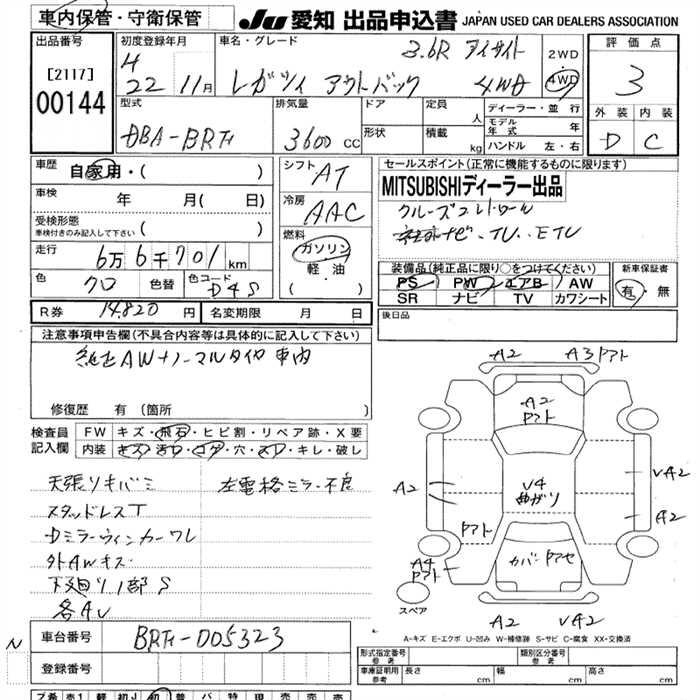 車内保管・守衛保管 JU 愛知 出品申込書 JAPAN USED CAR DEALERS ASSOCIATION
出品番号 初度登録年月 車名・グレード 3.6R アイサイト 2WD 評価点
[2117] H 22 11月 レガシィ アウトバック 4WD 4WD 3
00144
型式 排気量 ドア 定員 人 ディーラー・並行 外装 内装
DBA-BR 3600 CC 形状 積載 kg モデル年式 ハンドル 左・右 D C
車歴 自家用・( ) シフト AT セールスポイント(正常に機能するものに限ります)
車検 年 月( 日) 冷房 AAC MITSUBISHIディーラー出品
受検形態 クルーズコントロール
車検付きのみ記入して下さい ( ) 燃料 ナビ・TV・ETC
走行 6万6千701km ガソリン
軽油
色 クロ 色替 色コード D4S 装備品(純正品に限り○をつけてください) 新車保証書
PS PW エアB AW 有・無
SR ナビ TV カワシート
R券 14,820円 名変期限 月 日 後日品
注意事項申告欄(不具合内容等は具体的に記入して下さい)
純正AW+ノーマルタイヤ車内
修復歴 有(箇所 )
検査員 FW キズ・飛石・ヒビ割・リペア跡・X要
記入欄 内装 キズ・汚コ・コゲ・穴・スレ・キレ・破レ
天張リキバミ 左電格ミラー不良
スタッドレスT
Dミラーウィンカーワレ
外AWキズ
下廻り1部S
各AU
A2 A3
A2
V4
A2 VA2
A2
カバー
A4
スペア
A2 VA2
A-キズ E-エクボ U-凹み W-補修跡 S-サビ C-腐食 XX-交換済
N 車台番号 -005323
登録番号
形式指定番号 参考 類別区分番号 参考
車庫証明用 参考 長さ cm 幅 cm 高さ cm